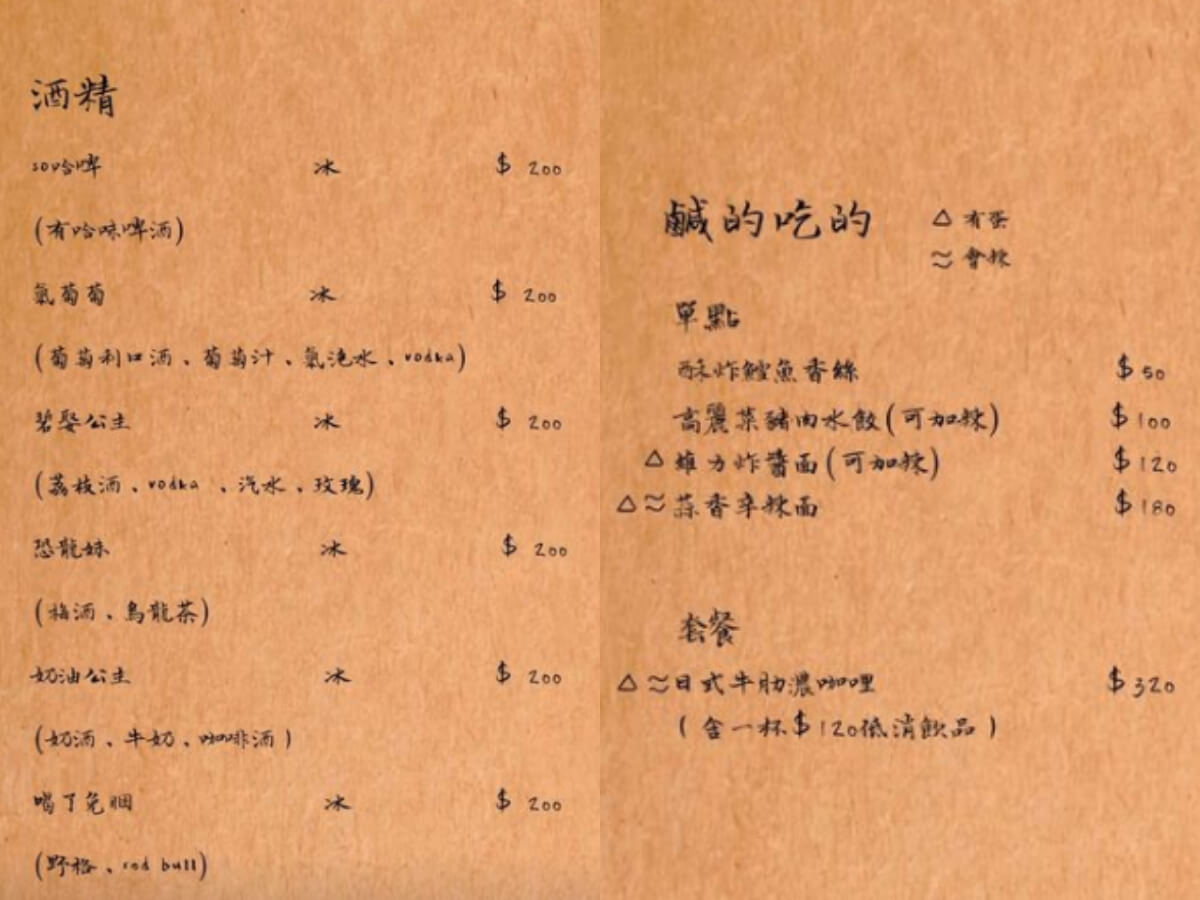 酒精
sou哈啤 冰 $ 200
(有哈味啤酒)
氣葡萄 冰 $ 200
(葡萄利口酒、葡萄汁、氣泡水、vodka)
碧娶公主 冰 $ 200
(荔枝酒、vodka 、汽水、玫瑰)
恐龍妹 冰 $ 200
(梅酒、烏龍茶)
奶油公主 冰 $ 200
(奶酒、牛奶、咖啡酒)
喝了免睏 冰 $ 200
(野格、red bull)
鹹的吃的 △ 有蛋
≈ 會辣
單點
酥炸鱈魚香絲 $ 50
高麗菜豬肉水餃(可加辣) $ 100
△ 維力炸醬面(可加辣) $ 120
△ ≈ 蒜香辛辣面 $ 180
套餐
△ ≈ 日式牛肋濃咖哩 $ 320
(含一杯$ 120低消飲品)